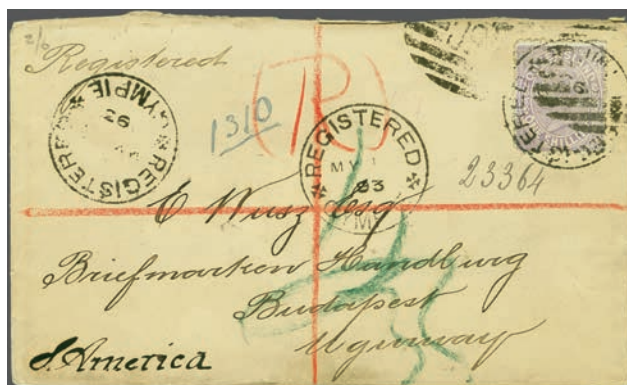 Registered
GYMPIE
26
REGISTERED
1310
(R)
REGISTERED
MY 1
93
23364
E Wusz Esq
Briefmarken Handlung
Budapest
Uguway
S. America